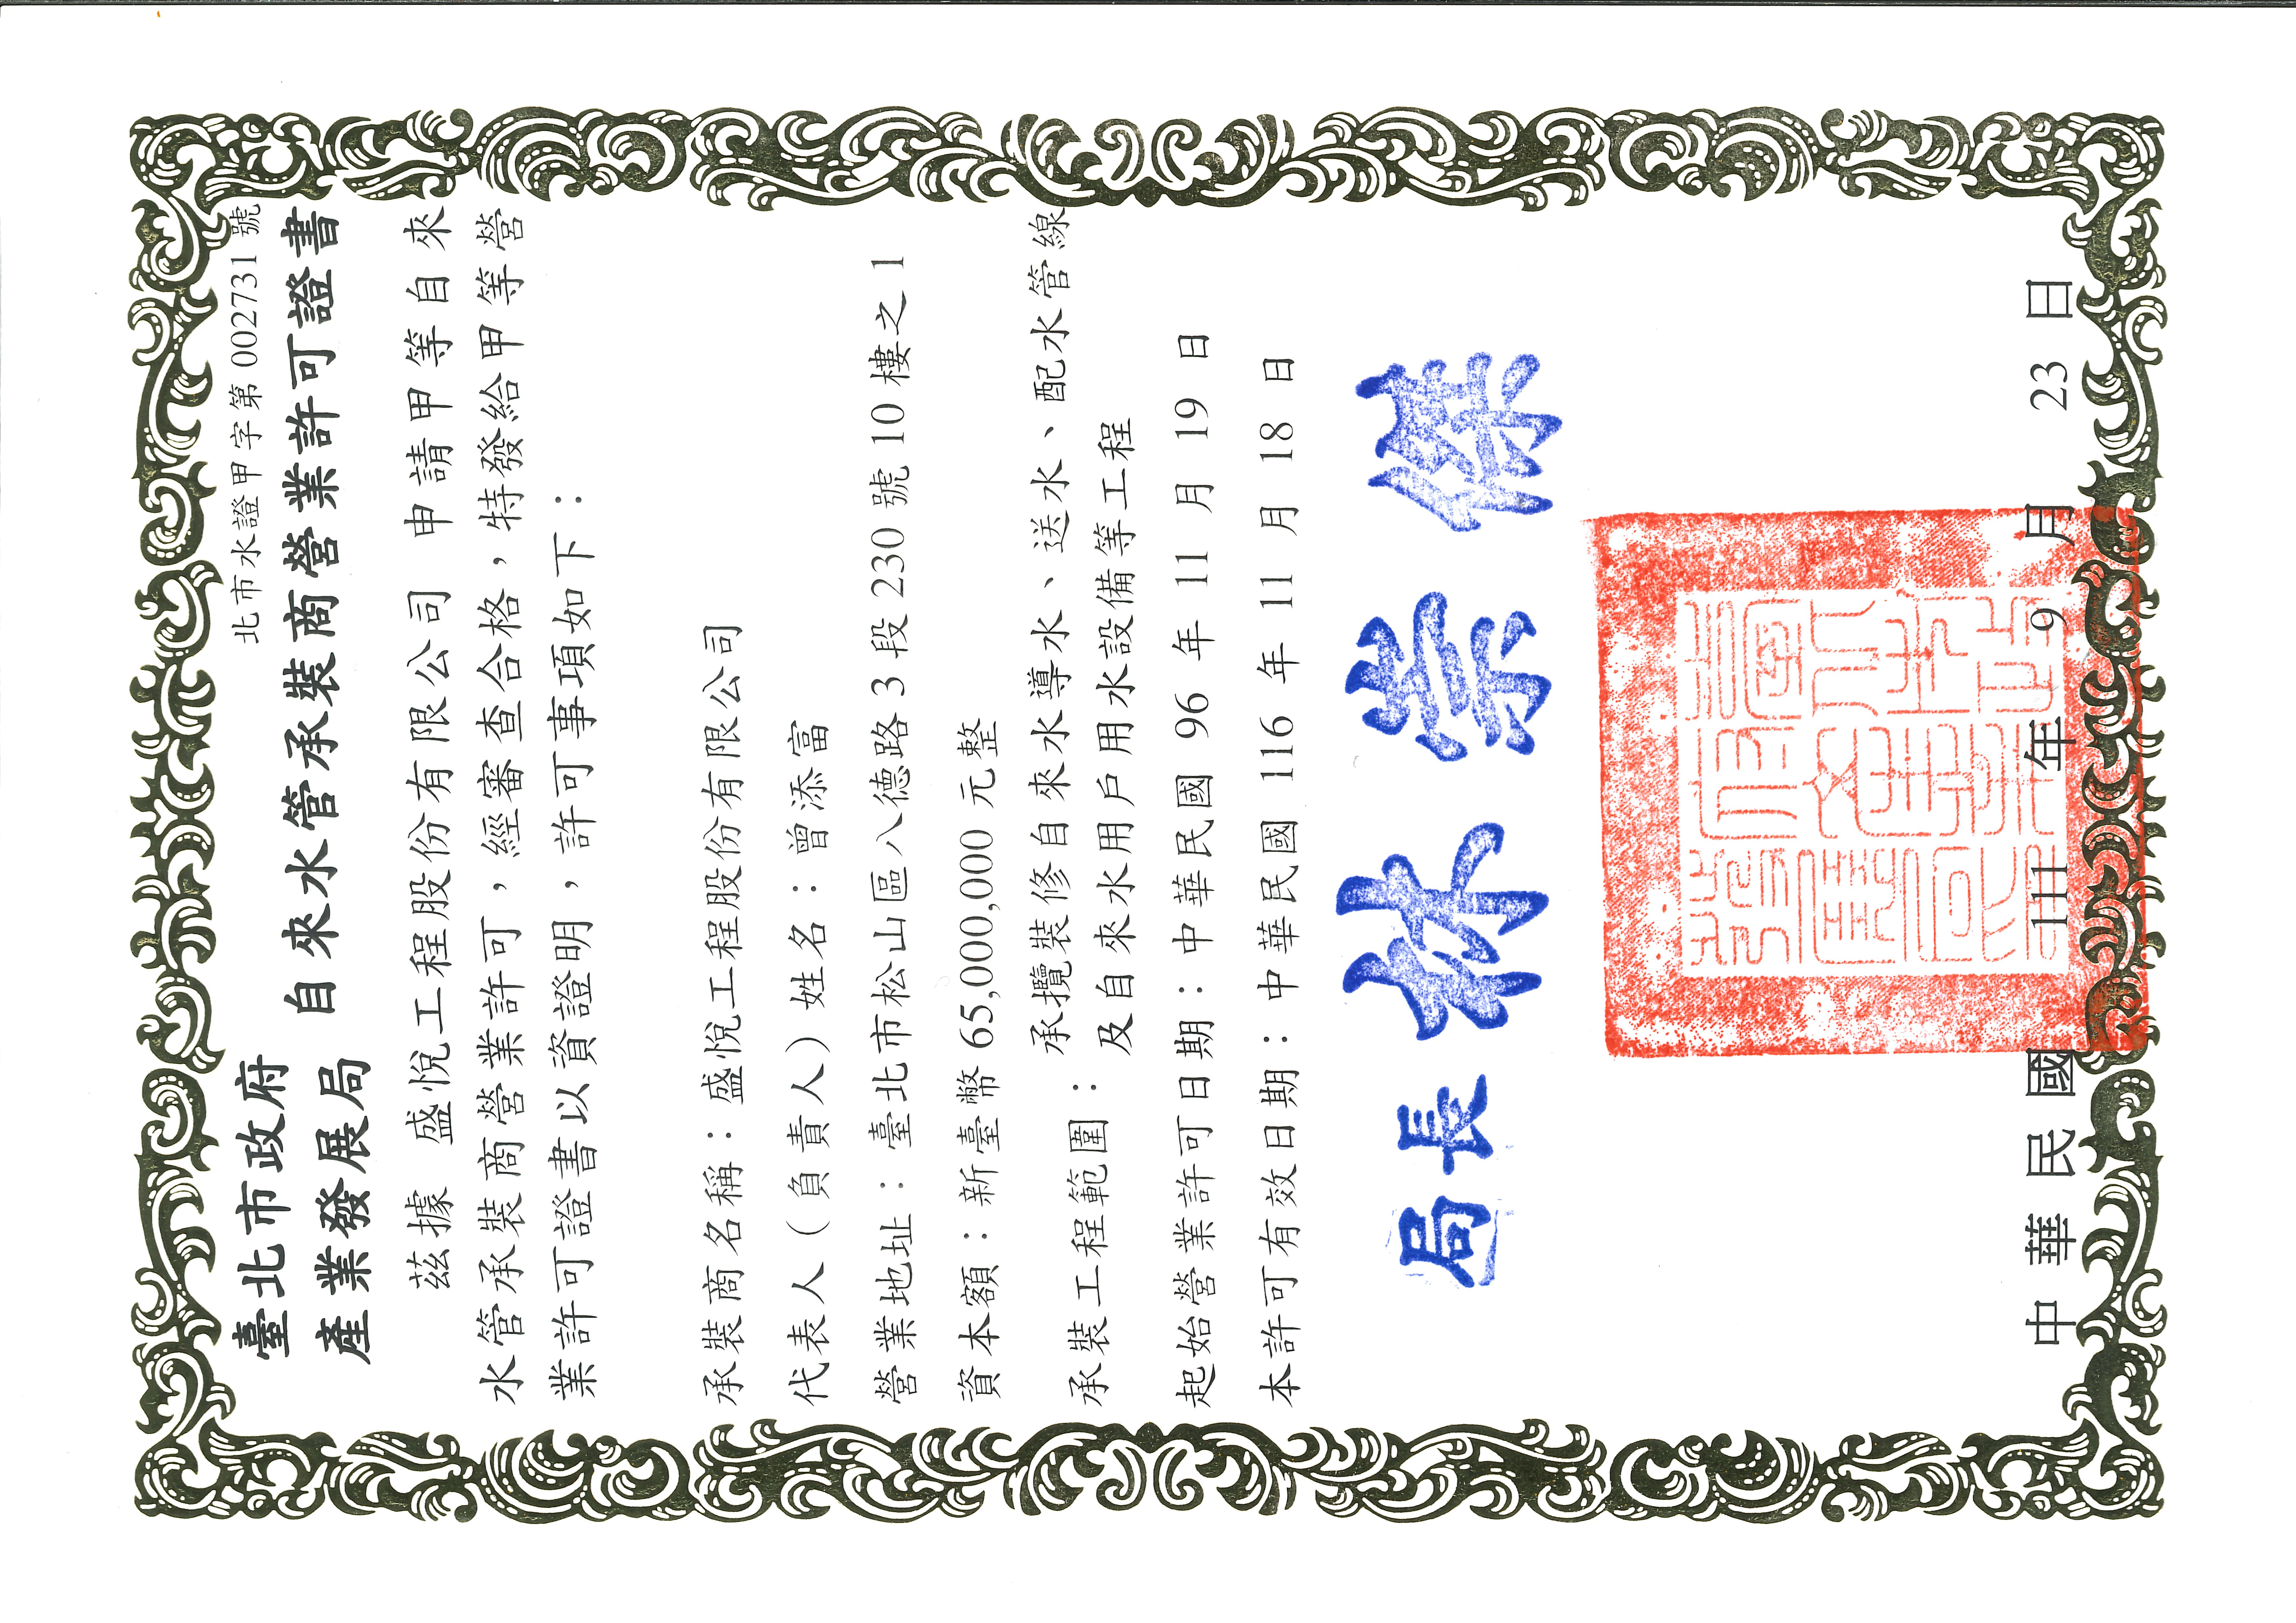 北市水證甲字第 002731 號
臺北市政府
產業發展局
自來水管承裝商營業許可證書
茲據 盛悅工程股份有限公司 申請甲等自來
水管承裝商營業許可，經審查合格，特發給甲等營
業許可證書以資證明，許可事項如下：
承裝商名稱：盛悅工程股份有限公司
代表人（負責人）姓名：曾添富
營業地址：臺北市松山區八德路 3 段 230 號 10 樓之 1
資本額：新臺幣 65,000,000 元整
承裝工程範圍：
承攬裝修自來水導水、送水、配水管線
及自來水用戶用水設備等工程
起始營業許可日期：中華民國 96 年 11 月 19 日
本許可有效日期：中華民國 116 年 11 月 18 日
局長 林崇傑
中華民國 111 年 9 月 23 日